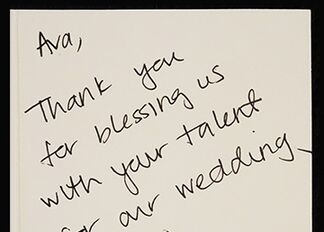 Ava,
Thank you
for blessing us
with your talent
for our wedding